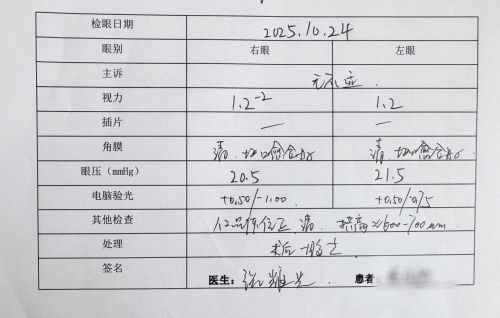 检眼日期 2025.10.24
眼别 右眼 左眼
主诉 无不适.
视力 1.2⁻² 1.2
插片 — —
角膜 清.切口愈合好 清.切口愈合好
眼压（mmHg） 20.5 21.5
电脑验光 +0.50/-1.00 +0.50/-0.75
其他检查 人工晶体位正 清. 拱高≈600-700μm
处理 术后
签名 医生: 患者